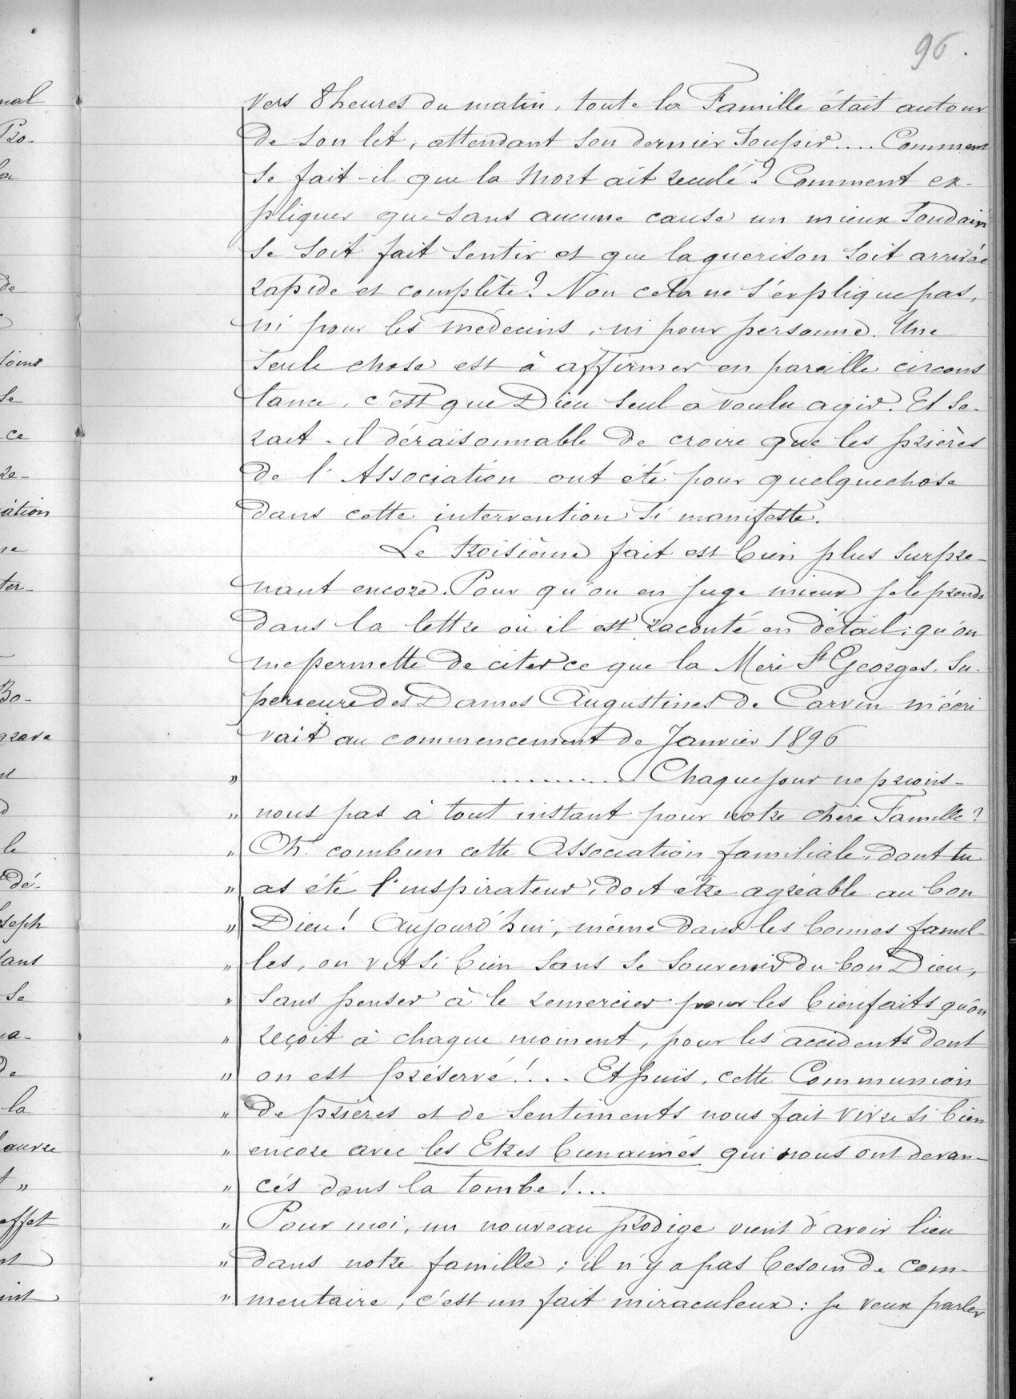 96.
vers 8 heures du matin, toute la Famille était autour
de son lit, attendant son dernier soupir.... Comment
se fait-il que la Mort ait reculé? Comment ex-
pliquer que sans aucune cause un mieux soudain
se soit fait sentir et que la guerison soit arrivée
rapide et complète? Non cela ne s'explique pas,
ni pour les médecins, ni pour personne. Une
seule chose est à affirmer en pareille circons
tance, c'est que Dieu seul a voulu agir. Et se-
rait-il déraisonnable de croire que les prières
de l'Association ont été pour quelquechose
dans cette intervention si manifeste.
Le troisième fait est bien plus surpre-
nant encore. Pour qu'on en juge mieux je le prends
dans la lettre où il est raconté en détail; qu'on
me permette de citer ce que la Mère St Georges, Su-
perieure des Dames Augustines de Carvin m'écri
vait au commencement de Janvier 1896
" ........... Chaque jour ne prions-
" nous pas à tout instant pour notre chère Famille?
" Oh! combien cette Association familiale, dont tu
" as été l'inspirateur, doit être agréable au bon
" Dieu! Aujourd'hui, même dans les bonnes famil-
" les, on vit si bien sans se souvenir du bon Dieu,
" sans penser à le remercier pour les bienfaits qu'on
" reçoit à chaque moment, pour les accidents dont
" on est préservé!... Et puis, cette Communion
" de prières et de sentiments nous fait vivre si bien
" encore avec les Etres bienaimés qui nous ont devan-
" cés dans la tombe!...
" Pour moi, un nouveau prodige vient d'avoir lieu
" dans notre famille; il n'y a pas besoin de com-
" mentaire, c'est un fait miraculeux: je veux parler